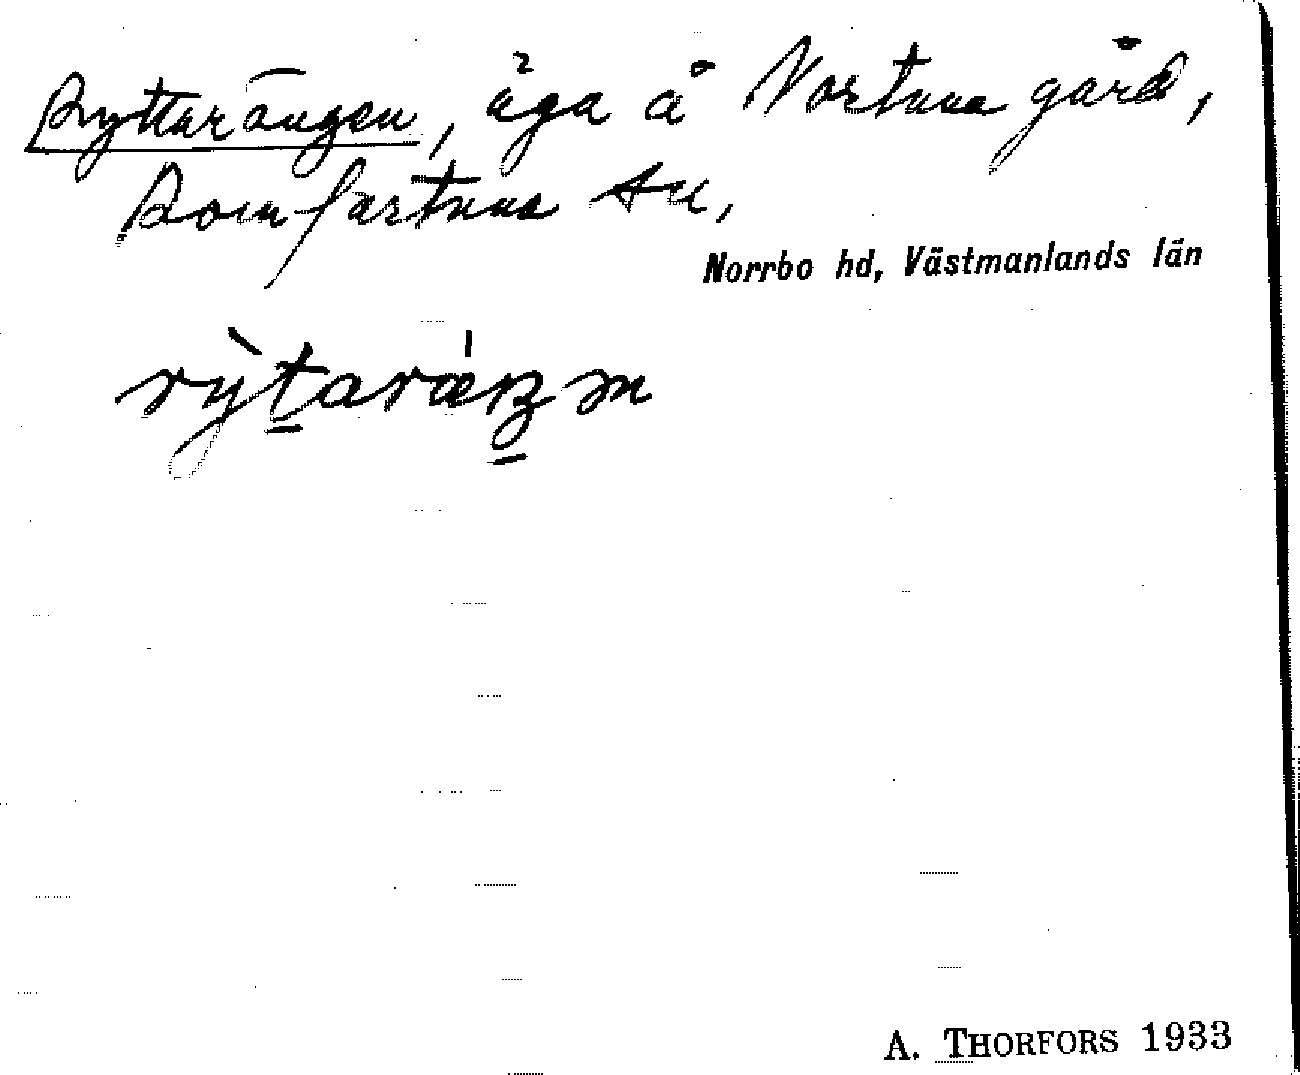 Ryttarängen, äga å Nortuna gård,
Romfartuna sn,
Norrbo hd, Västmanlands län
A. THORFORS 1933